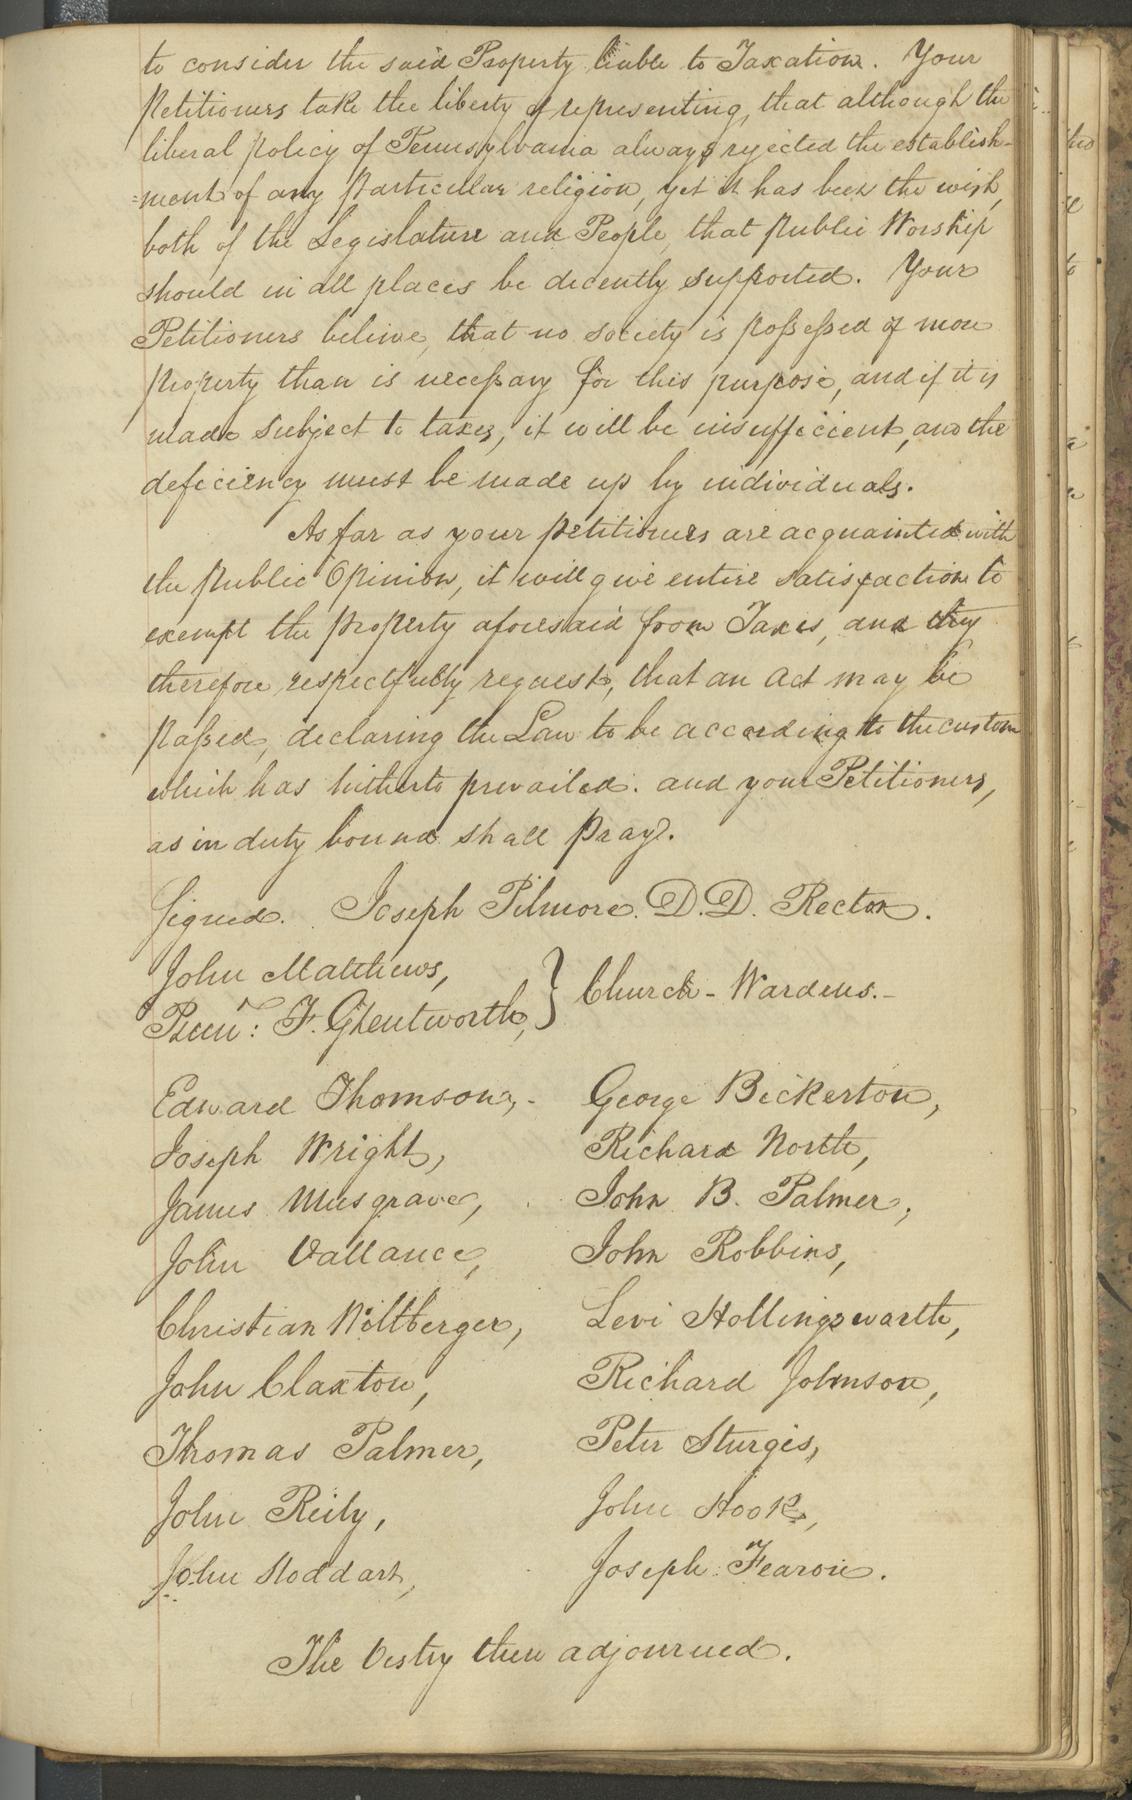 to consider the said Property liable to Taxation. Your
Petitioners take the liberty of representing, that although the
liberal policy of Pennsylvania always rejected the establish-
=ment of any particular religion, yet it has been the wish,
both of the Legislature and People, that public Worship
should in all places be decently supported. Your
Petitioners believe, that no society is possessed of more
property than is necessary for this purpose, and if it is
made subject to taxes, it will be insufficient, and the
deficiency must be made up by individuals.
As far as your petitioners are acquainted with
the public Opinion, it will give entire satisfaction to
exempt the property aforesaid from Taxes, and they
therefore respectfully request, that an Act may be
passed, declaring the Law to be according to the custom
which has hitherto prevailed. and your Petitioners,
as in duty bound shall pray.
Signed. Joseph Pilmore. D.D. Rector.
John Matthews,
Plunt: F. Glentworth, } Church-Wardens.-
Edward Thomson,- George Bickerton,
Joseph Wright, Richard North,
James Musgrave, John B. Palmer,
John Vallance, John Robbins,
Christian Wiltberger, Levi Hollingsworth,
John Claxton, Richard Johnson,
Thomas Palmer, Peter Sturgis,
John Reily, John Hook,
John Stoddart, Joseph Fearon.
The Vestry then adjourned.